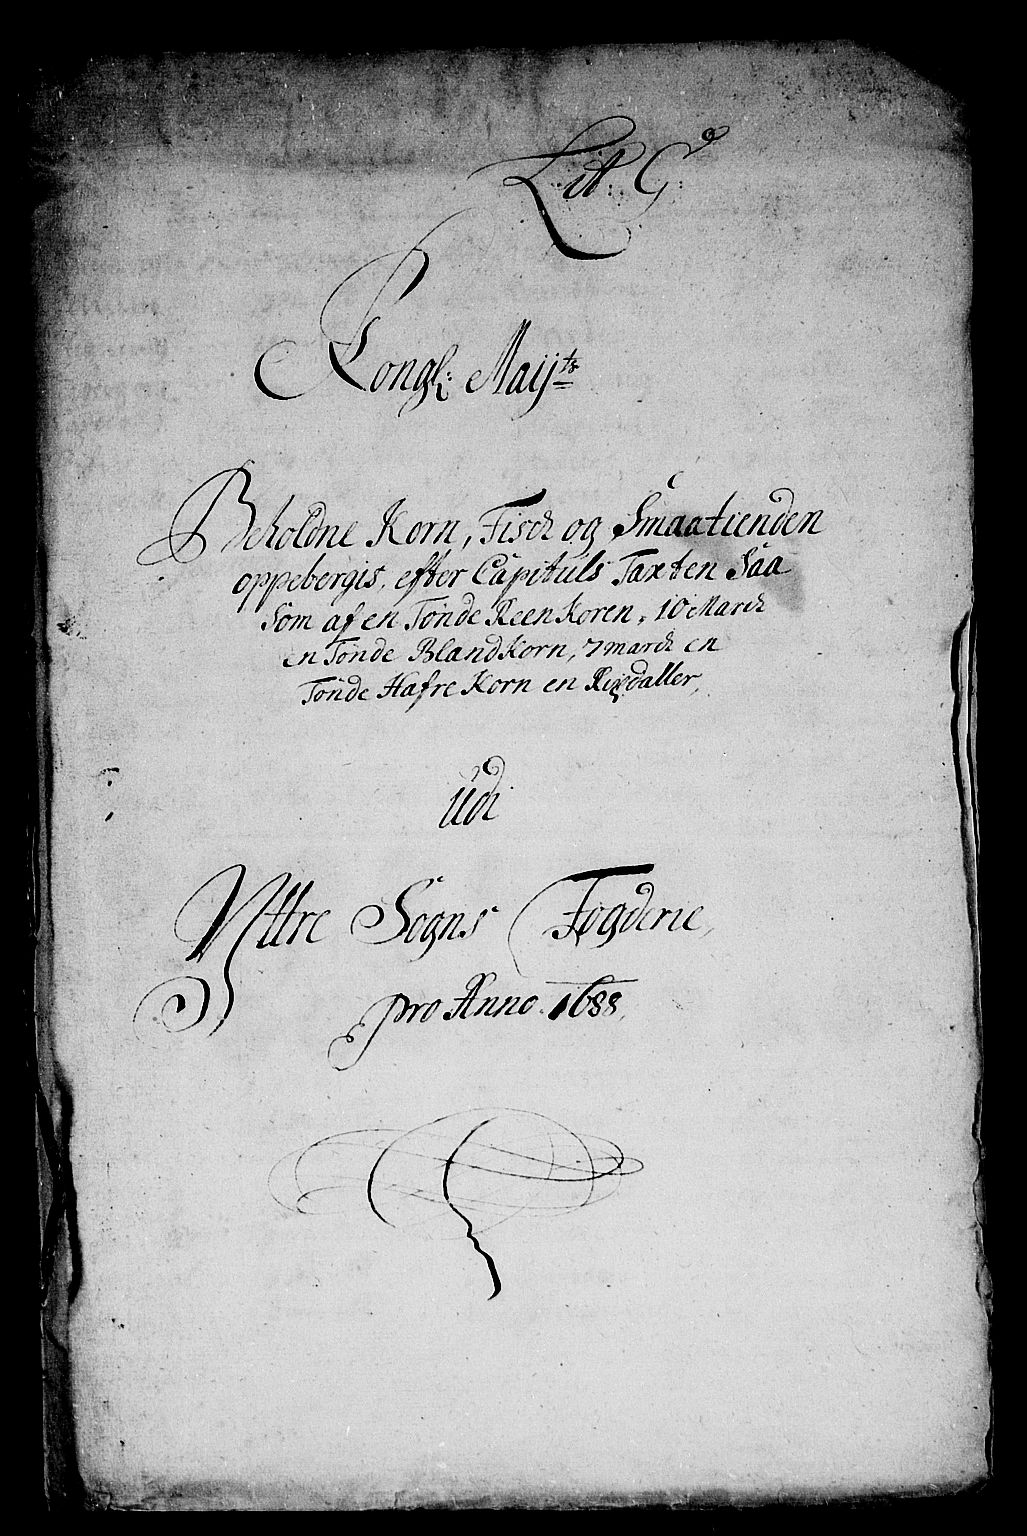 Lit: G:
Kongl: Maijts
Beholdne Korn, Fisch og Smaatienden
oppebergis, effter Capituls Taxten Saa
Som af en Tønde Reen Koren, 10 March
en Tønde Bland Korn, 7 march en
Tønde Hafre Korn en Rixdaller,
Udi
Yttre Sogns Fogderie,
pro Anno 1688,